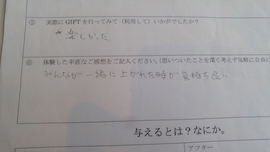 ① 実際に GIFT を行ってみて(利用して)いかがでしたか?
楽しかった
② 体験した率直なご感想をご記入ください。(思いついたことを深く考えず気軽に自由に
みんなが一緒に上がれた時が気持ち良い
与えるとは?なにか。
アフター